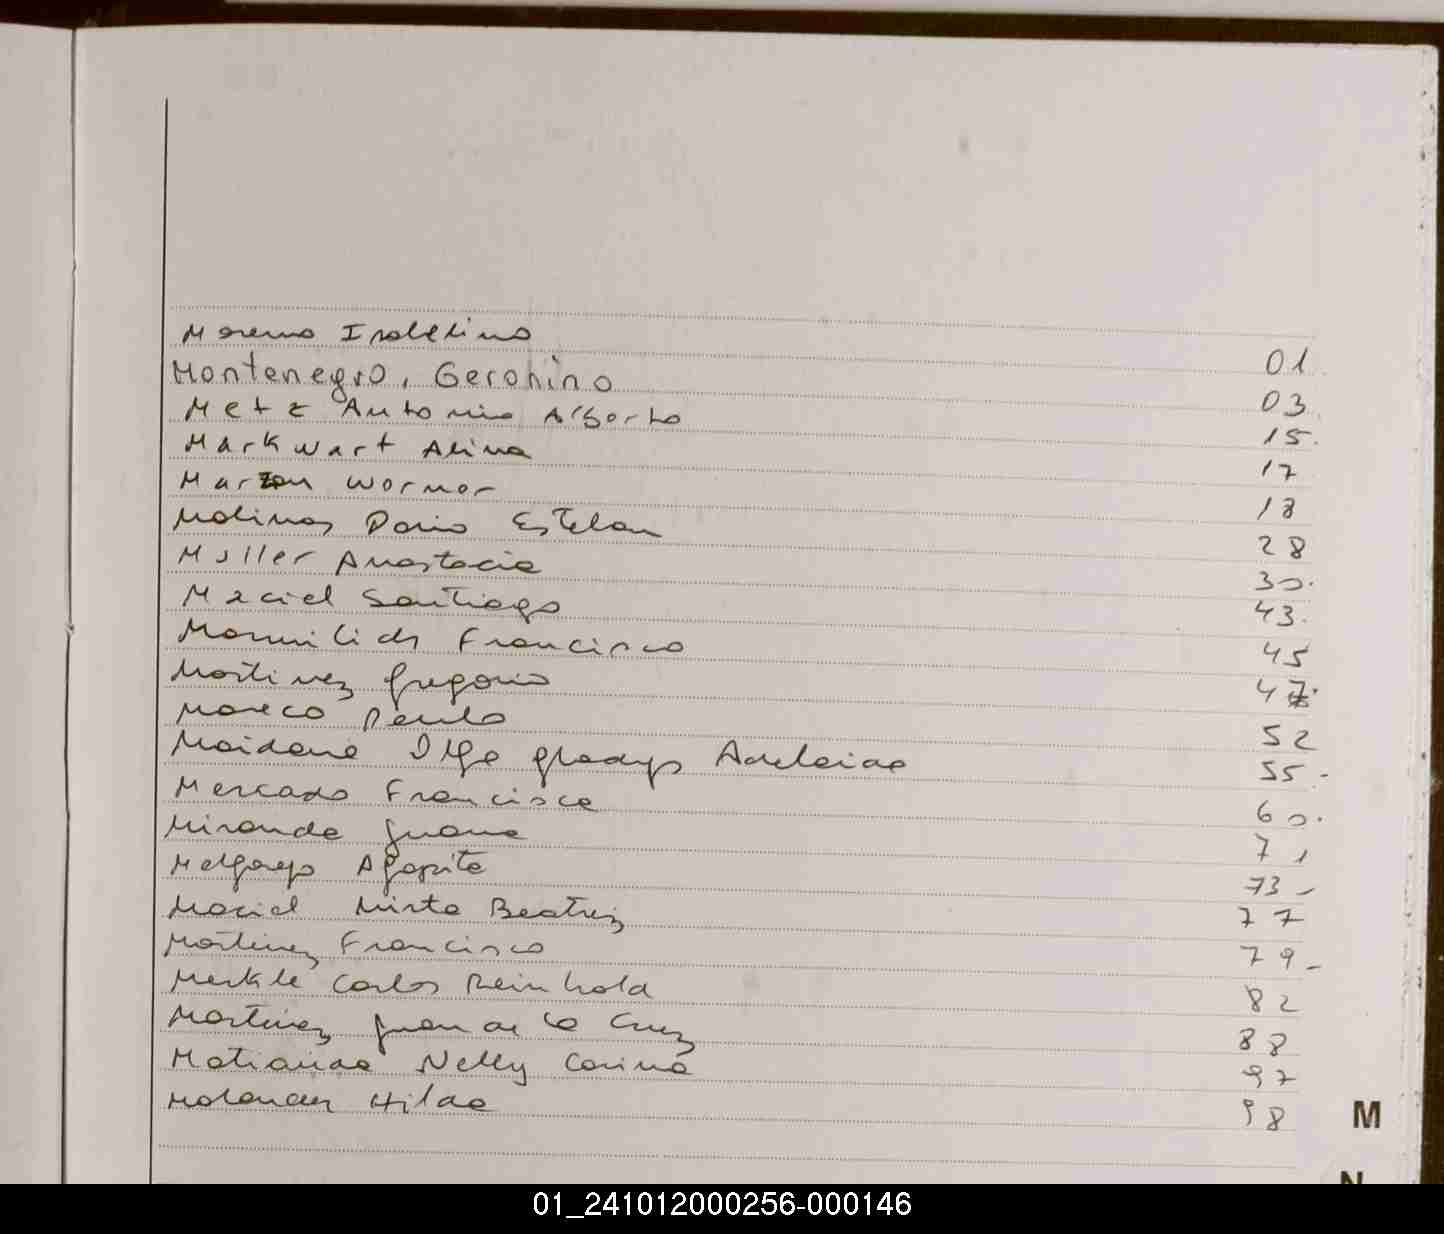 Moreno Isabelino 01.
Montenegro, Geronino 03.
Metz Antonio Alberto 15.
Markwart Alina 17
Marzon Wormor 18
Molinas Dario Esteban 28
Muller Anastacia 30.
Maciel Santiago 43.
Francisco 45
Martinez Gregorio 47.
Mareco Paulo 52
Maidana Olga Gladys Adelaida 55.
Mercado Francisca 60.
Miranda Juana 71
Melgarejo Agapita 73 -
Maciel Mirta Beatriz 77
Martinez Francisco 79 -
Merkle Carlos Reinhold 82
Martinez Juan de la Cruz 88
Nelly Carina 97
Hilda 98
M
N
01_241012000256-000146